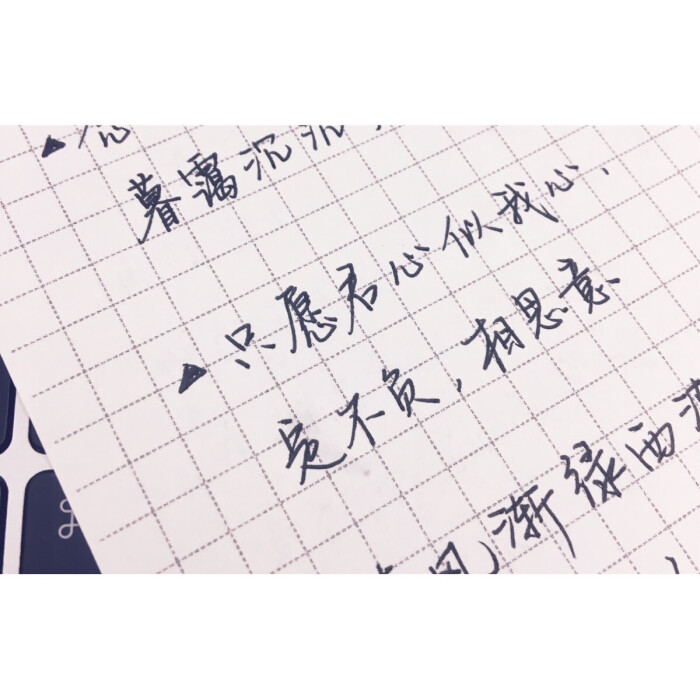 ▲念
暮霭沉沉
▲只愿君心似我心,
定不负,相思意
风渐绿西
⌘